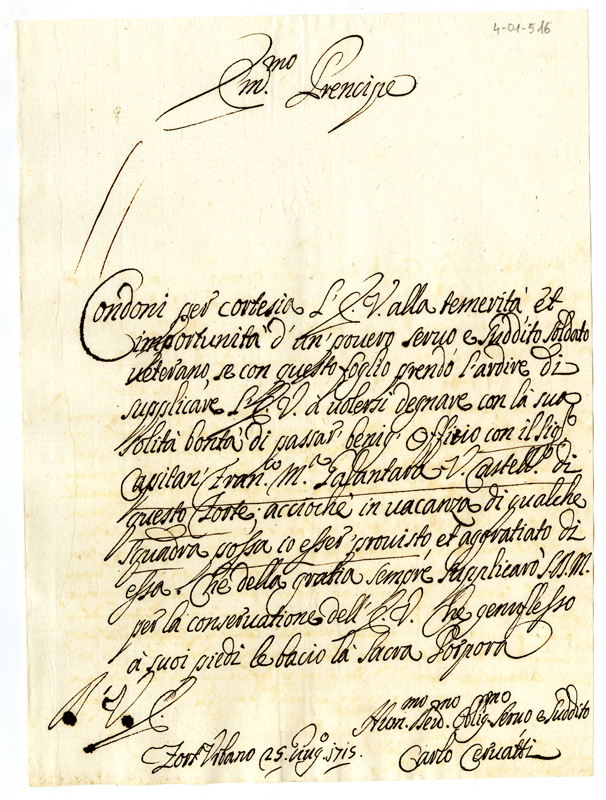 4-01-516
Em.mo Prencipe
Condoni per cortesia l'E.V. alla temerità et
importunità d'un povero servo e suddito soldato
veterano, se con questo foglio prendo l'ardire di
supplicare l'E.V. à volersi degnare con la sua
solita bontà di passar benig.o Offitio con il Sig.r
Capitan' Fran.co M.a V. Castell.o di
questo Forte, accioché in vacanza di qualche
squadra possa io esser provisto et agratiato di
essa. Che della gratia sempre supplicarò S.D.M.
per la conservatione dell'E.V. Che genuflesso
à suoi piedi le bacio la Sacra Porpora
D. V. E.
Hum.mo Dev.mo Oblig.mo Servo e Suddito
Forte Urbano 25. Giug.o 1715.
Carlo Cervatti